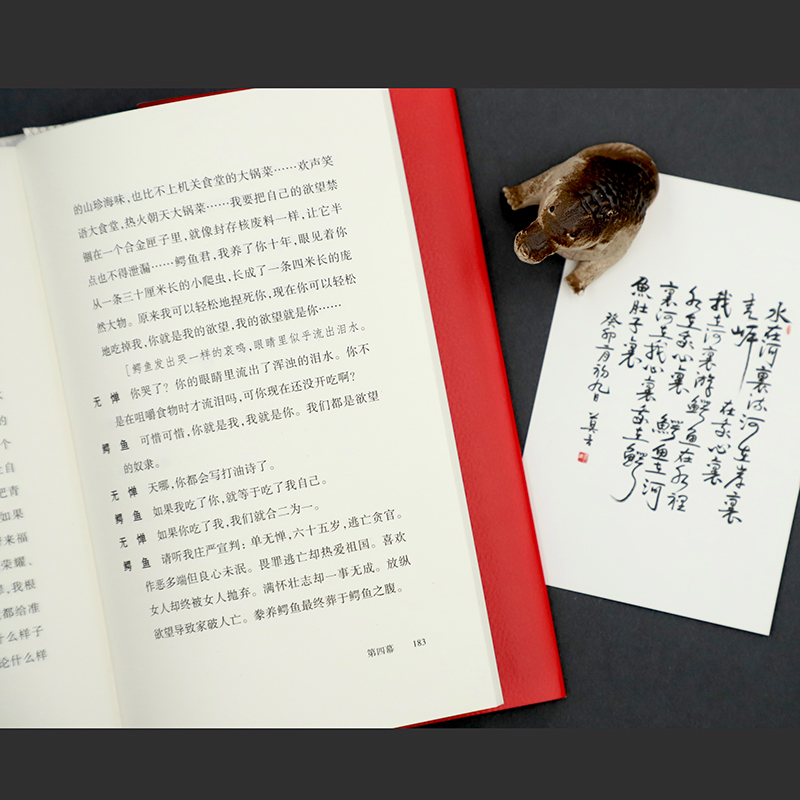 的山珍海味，也比不上机关食堂的大锅菜……欢声笑
语大食堂，热火朝天大锅菜……我要把自己的欲望禁
锢在一个合金匣子里，就像封存核废料一样，让它半
点也不得泄漏……鳄鱼君，我养了你十年，眼见着你
从一条三十厘米长的小爬虫，长成了一条四米长的庞
然大物。原来我可以轻松地捏死你，现在你可以轻松
地吃掉我，你就是我的欲望，我的欲望就是你……
［鳄鱼发出哭一样的哀鸣，眼睛里似乎流出泪水。
无惮 你哭了？你的眼睛里流出了浑浊的泪水。你不
是在咀嚼食物时才流泪吗，可你现在还没开吃啊？
鳄鱼 可惜可惜，你就是我，我就是你。我们都是欲望
的奴隶。
无惮 天哪，你都会写打油诗了。
鳄鱼 如果我吃了你，就等于吃了我自己。
无惮 如果你吃了我，我们就合二为一。
鳄鱼 请听我庄严宣判：单无惮，六十五岁，逃亡贪官。
作恶多端但良心未泯。畏罪逃亡却热爱祖国。喜欢
女人却终被女人抛弃。满怀壮志却一事无成。放纵
欲望导致家破人亡。豢养鳄鱼最终葬于鳄鱼之腹。
第四幕 183
的
个
自
把青
如果
来福
荣耀、
，我根
都给准
什么样子
论什么样
水在河裏流河在岸裏
走岸 在我心裏
我在河裏游鳄鱼在水裡
水在我心裏 鳄鱼在河
裏河在我心裏我在鳄
魚肚子裏
癸卯二月初九日 莫言